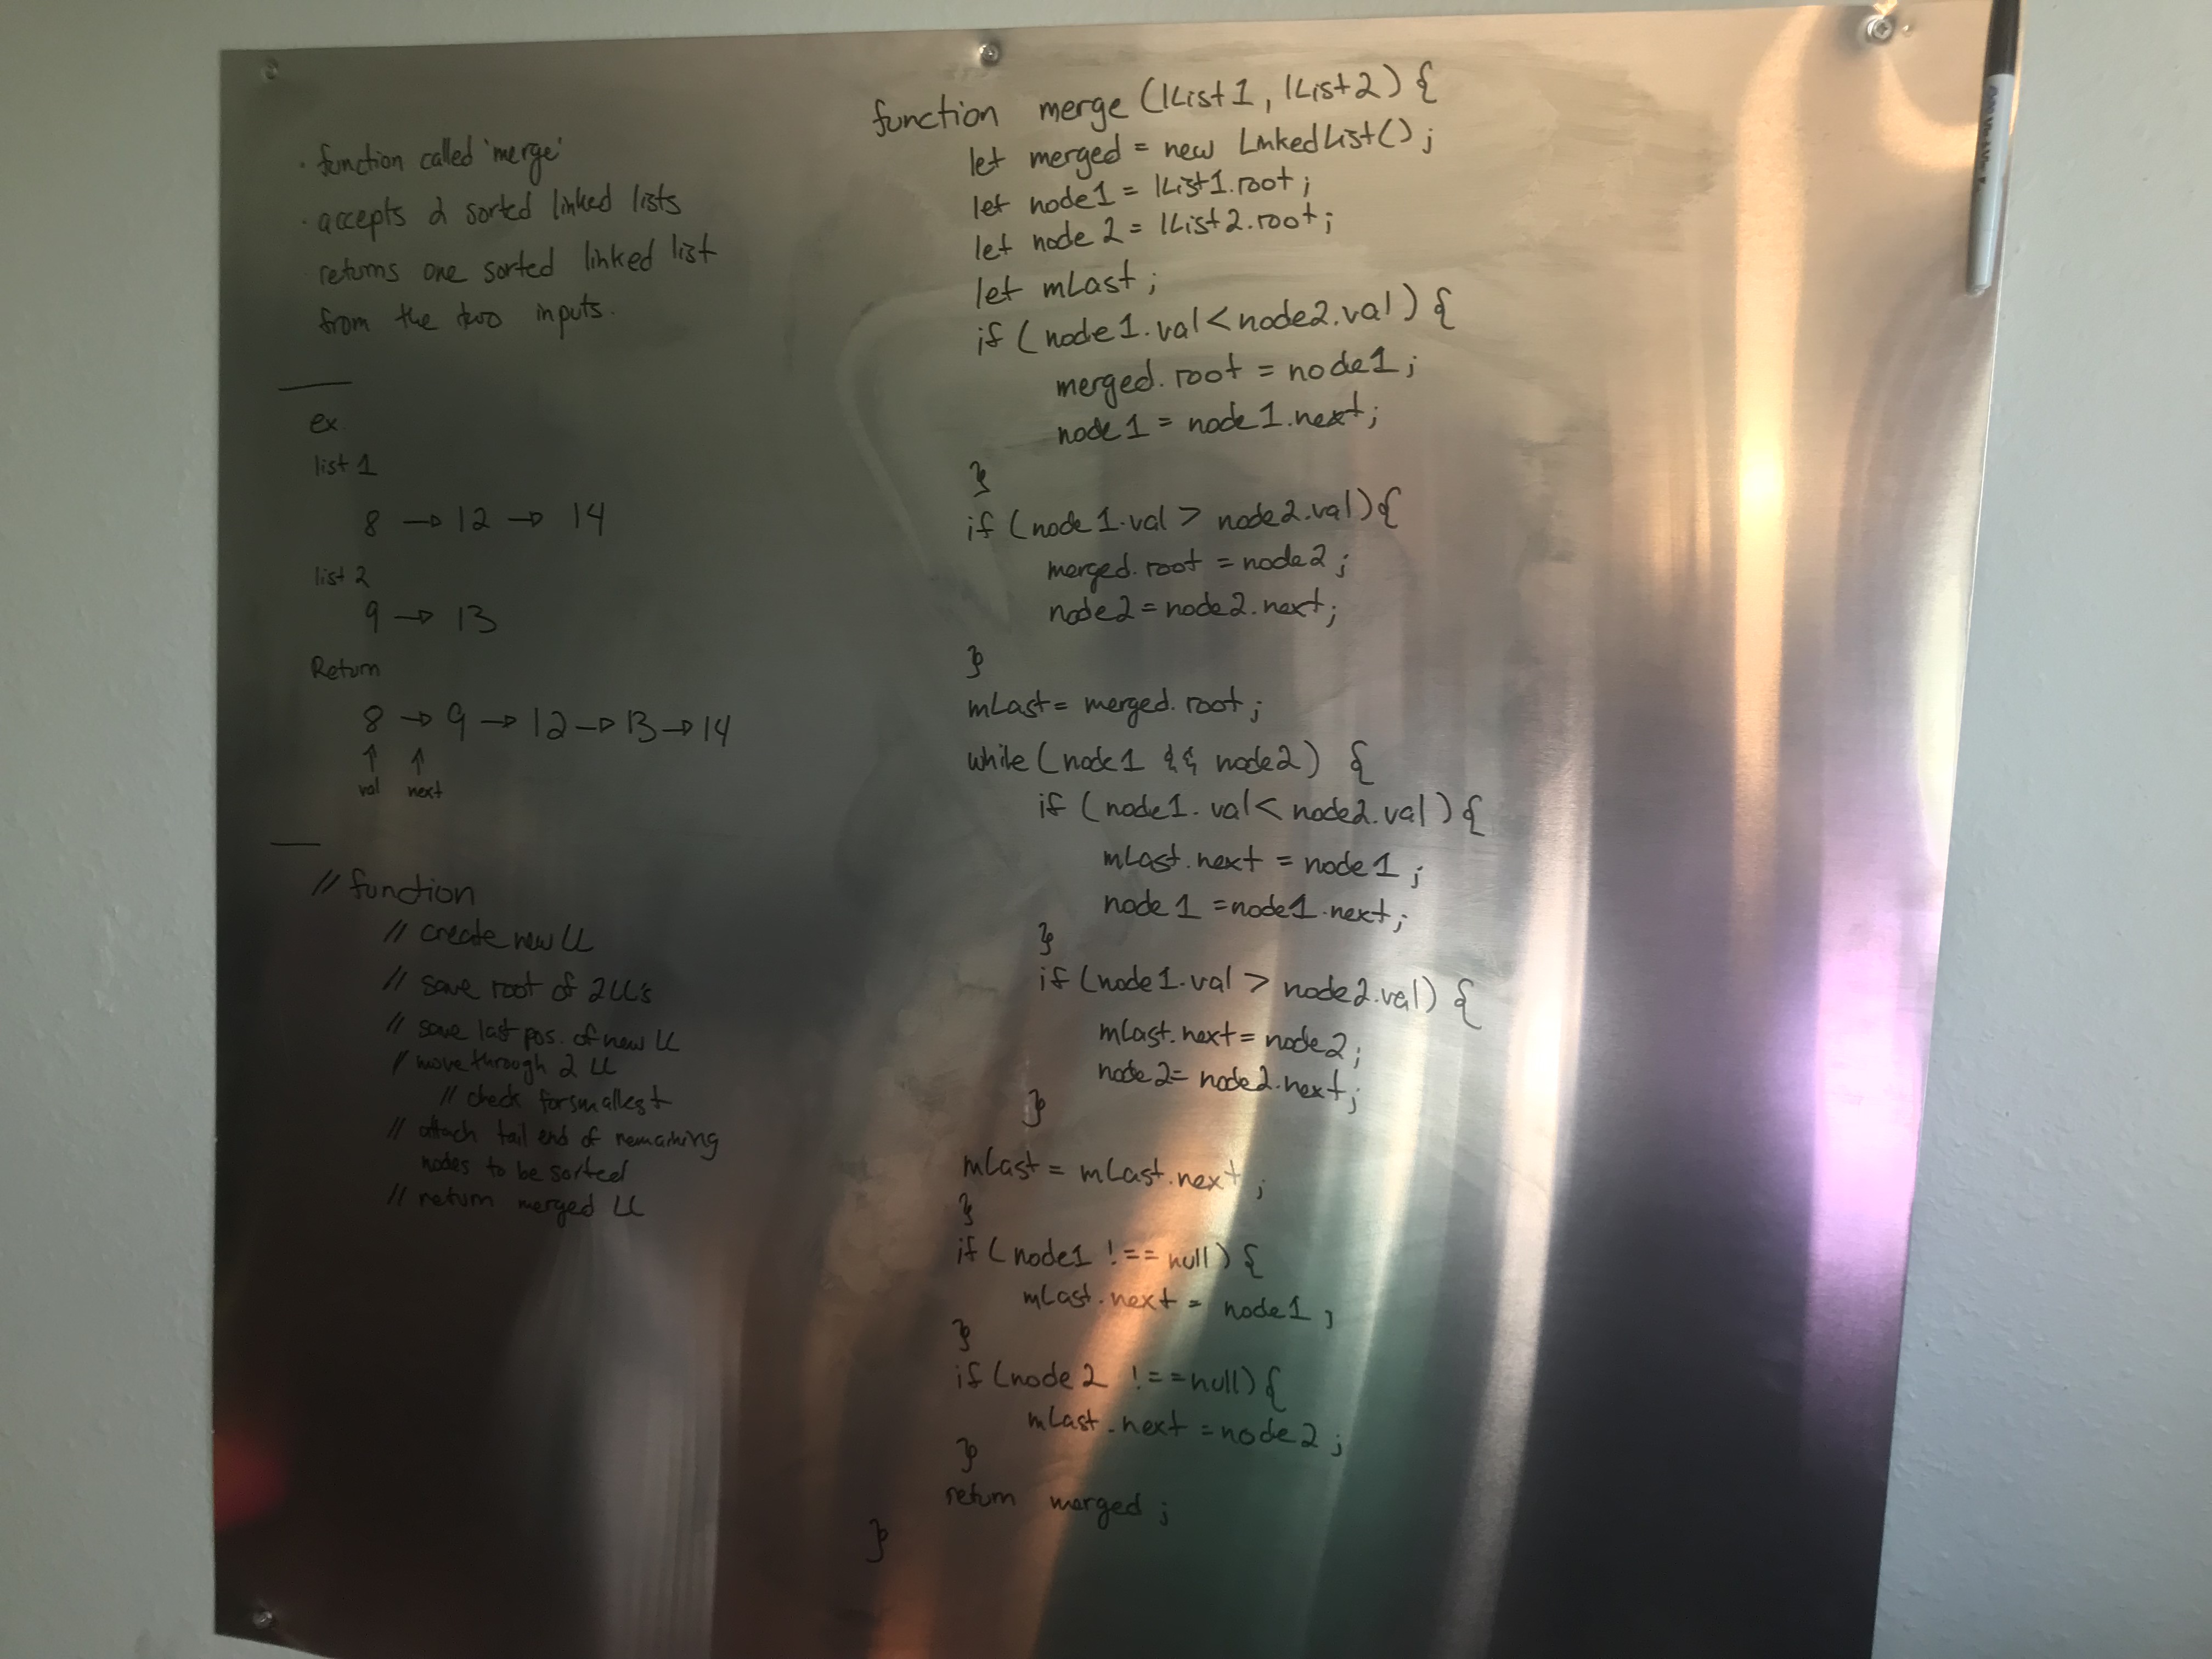 · function called 'merge'
· accepts 2 sorted linked lists
returns one sorted linked list
from the two inputs.
ex
list 1
8 → 12 → 14
list 2
9 → 13
Return
8 → 9 → 12 → 13 → 14
↑ ↑
val next
// function
// create new LL
// save root of 2 LL's
// save last pos. of new LL
// move through 2 LL
// check for smallest
// attach tail end of remaining
nodes to be sorted
// return merged LL
function merge (lList1, lList2) {
let merged = new LinkedList();
let node1 = lList1.root;
let node2 = lList2.root;
let mLast;
if (node1.val < node2.val) {
merged.root = node1;
node1 = node1.next;
}
if (node1.val > node2.val) {
merged.root = node2;
node2 = node2.next;
}
mLast = merged.root;
while (node1 && node2) {
if (node1.val < node2.val) {
mLast.next = node1;
node1 = node1.next;
}
if (node1.val > node2.val) {
mLast.next = node2;
node2 = node2.next;
}
mLast = mLast.next;
}
if (node1 !== null) {
mLast.next = node1;
}
if (node2 !== null) {
mLast.next = node2;
}
return merged;
}